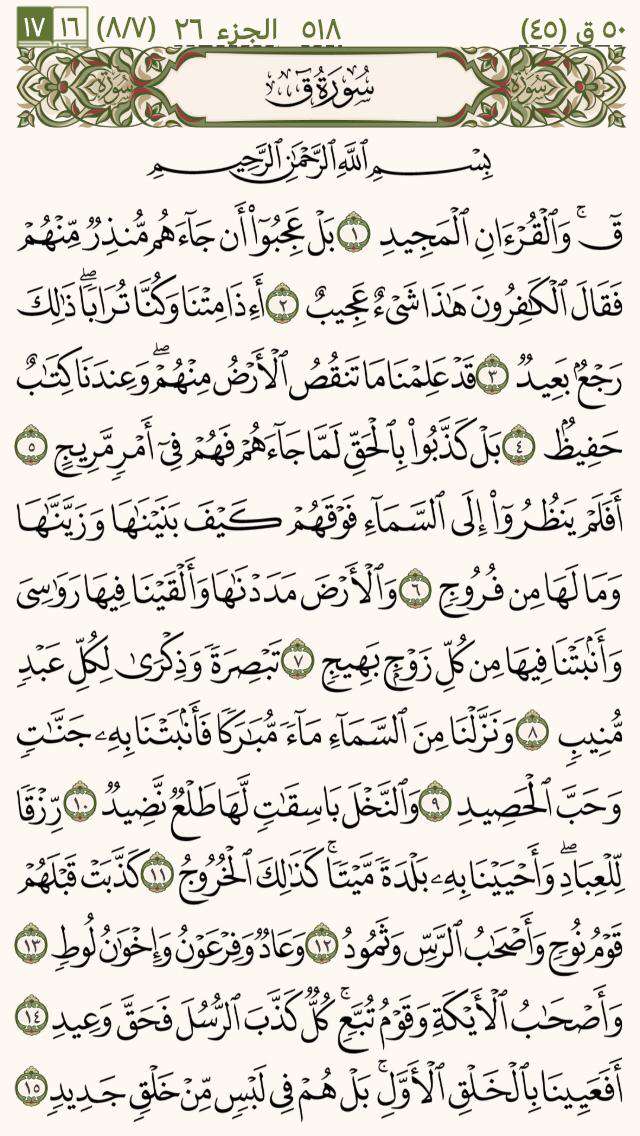 ٥٠ ق (٤٥) ٥١٨ الجزء ٢٦ (٨/٧) ١٦ ١٧
سورة سُورَةُ قٓ سورة
بِسْمِ ٱللَّهِ ٱلرَّحْمَٰنِ ٱلرَّحِيمِ
قٓ ۚ وَٱلْقُرْءَانِ ٱلْمَجِيدِ ١ بَلْ عَجِبُوٓا۟ أَن جَآءَهُم مُّنذِرٌ مِّنْهُمْ
فَقَالَ ٱلْكَٰفِرُونَ هَٰذَا شَىْءٌ عَجِيبٌ ٢ أَءِذَا مِتْنَا وَكُنَّا تُرَابًا ۖ ذَٰلِكَ
رَجْعٌۢ بَعِيدٌ ٣ قَدْ عَلِمْنَا مَا تَنقُصُ ٱلْأَرْضُ مِنْهُمْ ۖ وَعِندَنَا كِتَٰبٌ
حَفِيظٌۢ ٤ بَلْ كَذَّبُوا۟ بِٱلْحَقِّ لَمَّا جَآءَهُمْ فَهُمْ فِىٓ أَمْرٍ مَّرِيجٍ ٥
أَفَلَمْ يَنظُرُوٓا۟ إِلَى ٱلسَّمَآءِ فَوْقَهُمْ كَيْفَ بَنَيْنَٰهَا وَزَيَّنَّٰهَا
وَمَا لَهَا مِن فُرُوجٍ ٦ وَٱلْأَرْضَ مَدَدْنَٰهَا وَأَلْقَيْنَا فِيهَا رَوَٰسِىَ
وَأَنۢبَتْنَا فِيهَا مِن كُلِّ زَوْجٍۭ بَهِيجٍ ٧ تَبْصِرَةً وَذِكْرَىٰ لِكُلِّ عَبْدٍ
مُّنِيبٍ ٨ وَنَزَّلْنَا مِنَ ٱلسَّمَآءِ مَآءً مُّبَٰرَكًا فَأَنۢبَتْنَا بِهِۦ جَنَّٰتٍ
وَحَبَّ ٱلْحَصِيدِ ٩ وَٱلنَّخْلَ بَاسِقَٰتٍ لَّهَا طَلْعٌ نَّضِيدٌ ١٠ رِّزْقًا
لِّلْعِبَادِ ۖ وَأَحْيَيْنَا بِهِۦ بَلْدَةً مَّيْتًا ۚ كَذَٰلِكَ ٱلْخُرُوجُ ١١ كَذَّبَتْ قَبْلَهُمْ
قَوْمُ نُوحٍ وَأَصْحَٰبُ ٱلرَّسِّ وَثَمُودُ ١٢ وَعَادٌ وَفِرْعَوْنُ وَإِخْوَٰنُ لُوطٍ ١٣
وَأَصْحَٰبُ ٱلْأَيْكَةِ وَقَوْمُ تُبَّعٍ ۚ كُلٌّ كَذَّبَ ٱلرُّسُلَ فَحَقَّ وَعِيدِ ١٤
أَفَعَيِينَا بِٱلْخَلْقِ ٱلْأَوَّلِ ۚ بَلْ هُمْ فِى لَبْسٍ مِّنْ خَلْقٍ جَدِيدٍ ١٥